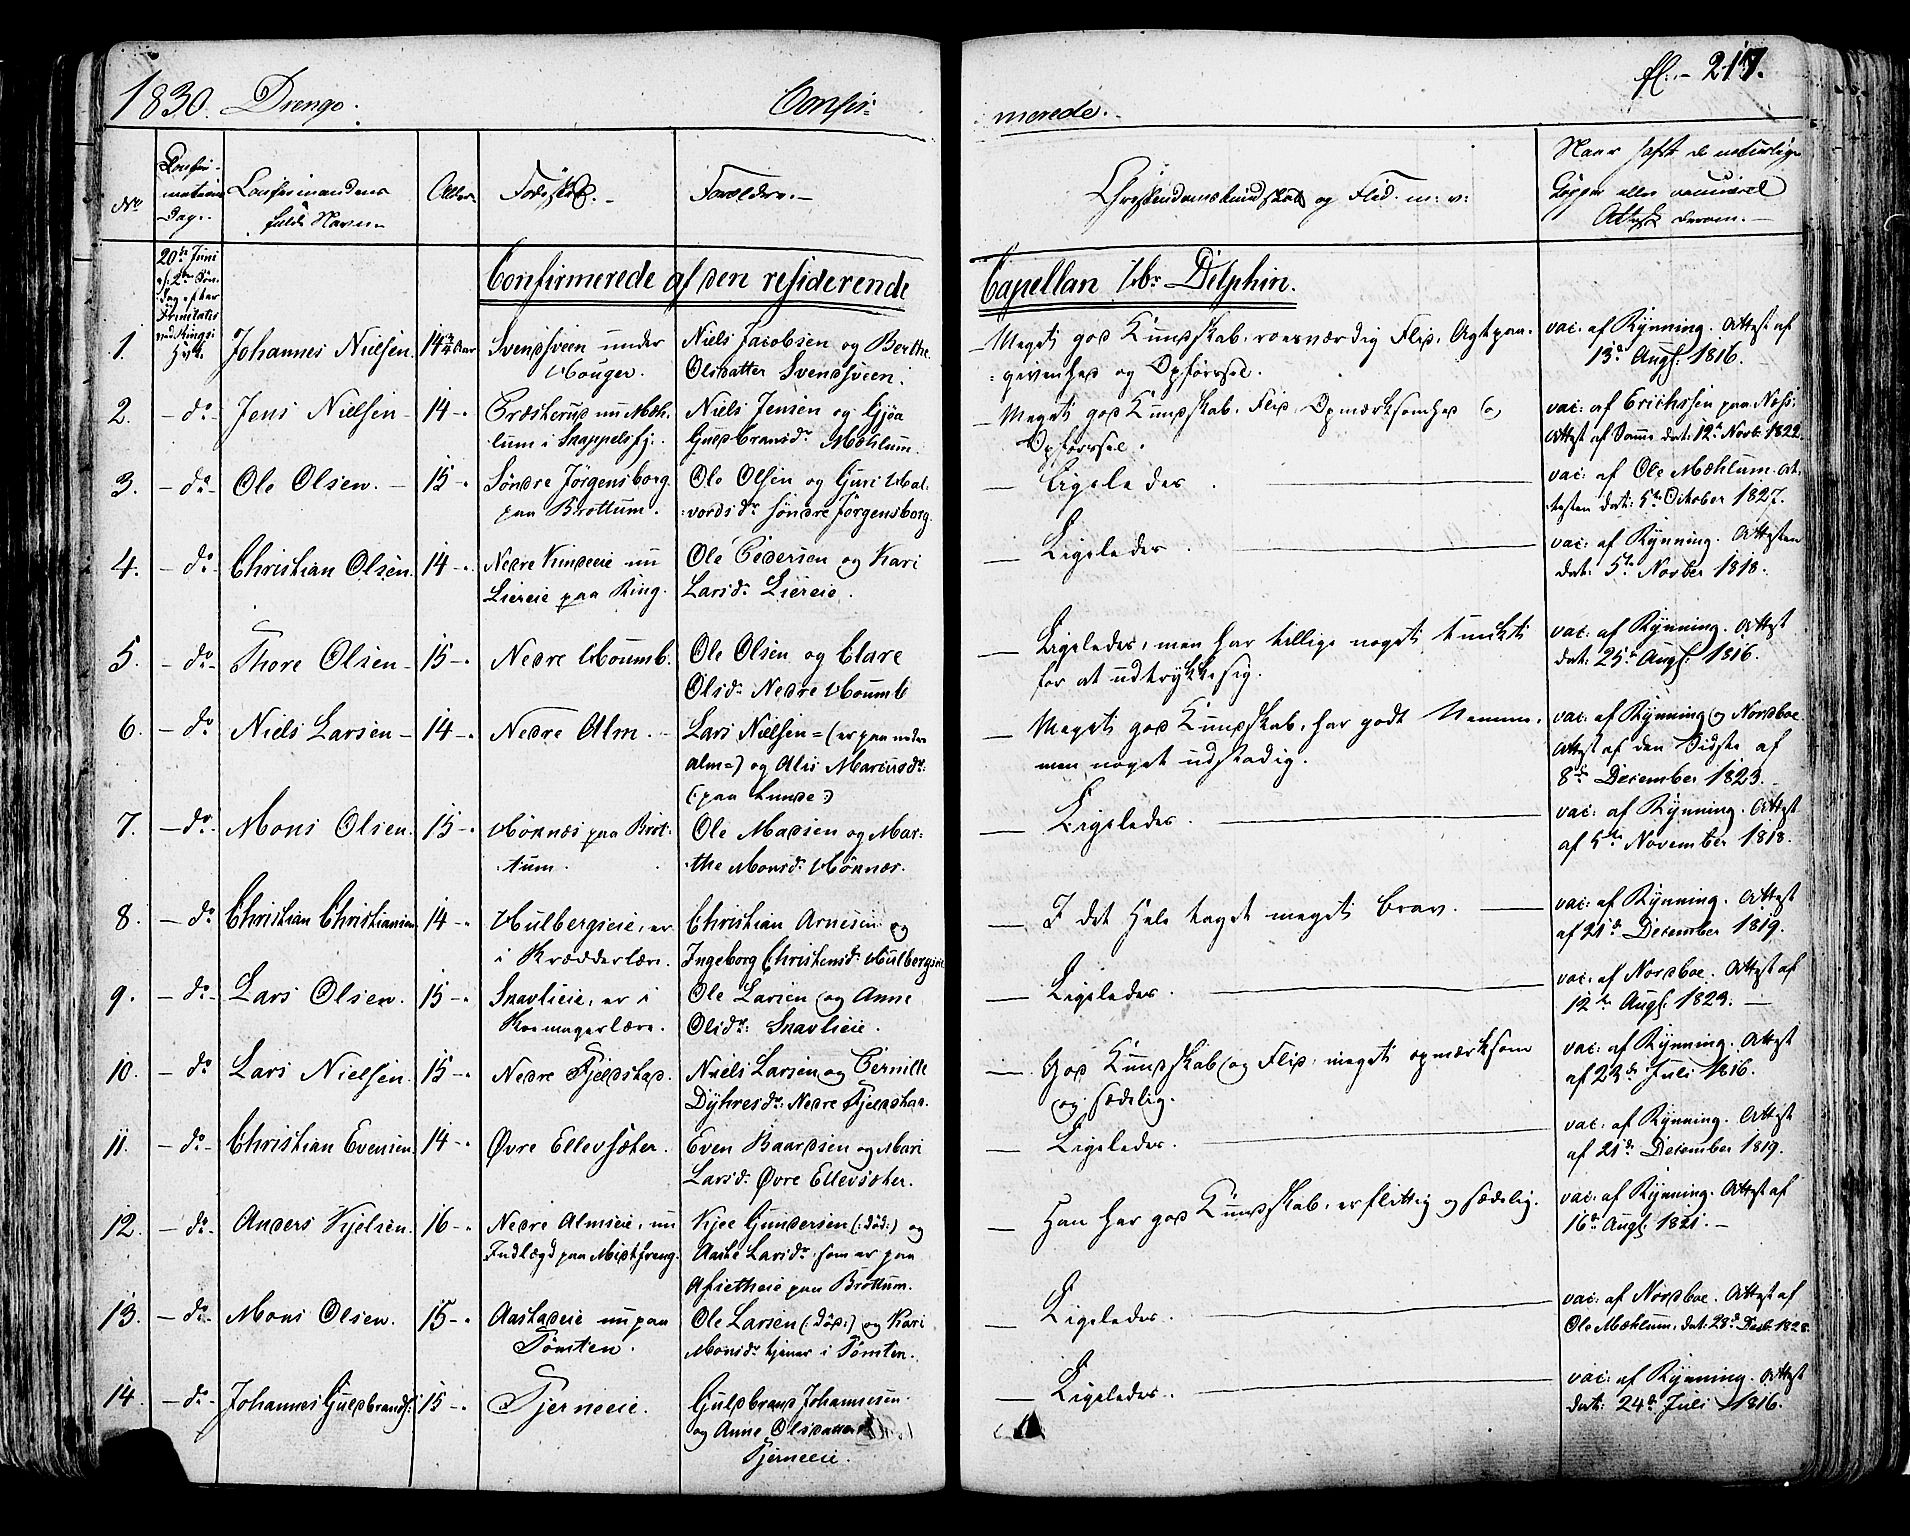 1830. Drenge.
Confir-
merede.
fl. - 217.
No
Confir-
mations
Dag.
Confirmandens
fulde Navn
Alder
Fødested.
Forældre.
Christendomskundskab og Flid. m: v:
Naar haft de naturlige
Kopper eller vaccineret
Attest derom.
20de Juni
2den Søn-
dag efter
Trinitatis
ved Rings.
Confirmerede af den residerende
Capellan Hr: Delphin.
1.
Johannes Nielsen
14 3/4 Aar
Svendsveen under
Houger.
Niels Jacobsen og Berthe
Olsdatter Svendsveen.
Meget god Kundskab, roesværdig Flid, Agtpaa-
givenhed og Opførsel.
vac: af Rynning. Attest af
13de Augs: 1816.
2. - do -
Jens Nielsen
14 -
Præsterud nu Mæh-
lum i
Niels Jensen og Gjøa
Guldbrandsdr Mæhlum.
Meget god Kundskab, Flid, Opmærksomhed og
Opførsel.
vac: af Erichssen paa Næs:
Attest af Samme dat: 12te Novbr 1822
3. - do -
Ole Olsen.
15 -
Søndre Jørgensborg
paa Brøttum.
Ole Olsen og Guri Hal-
vordsdr søndre Jørgensborg.
Ligeledes.
vac: af Ole Mæhlum At-
testen dat: 5te October 1827.
4. - do -
Christian Olsen
14 -
Nedre Kindeeie nu
Liereie paa Ring.
Ole Pedersen og Kari
Larsdr Liereie.
Ligeledes.
vac: af Rynning. Attesten
dat: 5te Novber 1818.
5. - do -
Thore Olsen
15 -
Nedre Houmb.
Ole Olsen og Clare
Olsdr Nedre Houmb
Ligeledes, men har tillige noget tungt
for at udtrykke sig.
vac: af Rynning. Attest
dat: 25de Augs: 1816.
6. - do
Niels Larsen
14 -
Nedre Alm.
Lars Nielsen (er paa nedre
alm) og Alis Marcusdr
(: paa Lunde :)
Meget god Kundskab, har godt Nemme,
men noget ustadig.
vac: af Rynning og Nordboe
Attest af den Sidste af
8de December 1823.
7. - do -
Mons Olsen.
15 -
Hønnæs paa Brøt-
tum.
Ole Madsen og Mar-
the Monsdr Hønnæs.
Ligeledes.
vac: af Rynning. Attest
af 5te November 1818.
8. - do
Christian Christiansen
14 -
Hulbergseie, er
i Skrædderlære.
Christian Arnesen og
Ingeborg Christensdr Hulbergseie
I det Hele taget meget brav.
vac: af Rynning. Attest
af 21de December 1819.
9. - do -
Lars Olsen.
15 -
Snavlieie, er i
Skomagerlære.
Ole Larsen og Anne
Olsdr: Snavlieie.
Ligeledes.
vac: af Nordboe. Attest af
12te Augs: 1823.
10. - do
Lars Nielsen
15 -
Nedre Fjeldstad.
Niels Larsen og Pernille
Dyhresdr: Nedre Fjeldstad.
God Kundskab og Flid, meget opmærksom
og sædelig.
vac: af Rynning. Attest
af 23de Juli 1816.
11. - do -
Christian Evensen
14 -
Øvre Ellevsæter.
Even Baardsen og Mari
Larsdr Øvre Ellevsæter.
Ligeledes.
vac: af Rynning. Attest
af 21de December 1819.
12. - do -
Anders Kjelsen
16 -
Nedre Almseie, nu
Indlægd paa
Kjel Gundersen (: død :) og
Aaste Larsdr, som er paa
paa Brøttum.
Han har god Kundskab, er flittig og sædelig.
vac: af Rynning. Attest af
16de Augs: 1821.
13. - do -
Mons Olsen.
15 -
Aastadeie nu paa
Tømten.
Ole Larsen (: død :) og Kari
Monsdr tjener i Tømten.
Ligeledes.
vac: af Nordboe. Attest af
Ole Mæhlum, dat: 23de Decbr 1828
14. - do -
Johannes Guldbrands:
15 -
Tjerneeie.
Guldbrand Johannesen
og Anne Olsdatter
Tjerneeie.
Ligeledes.
vac: af Rynning. Attest
dat: 24de Juli 1816.